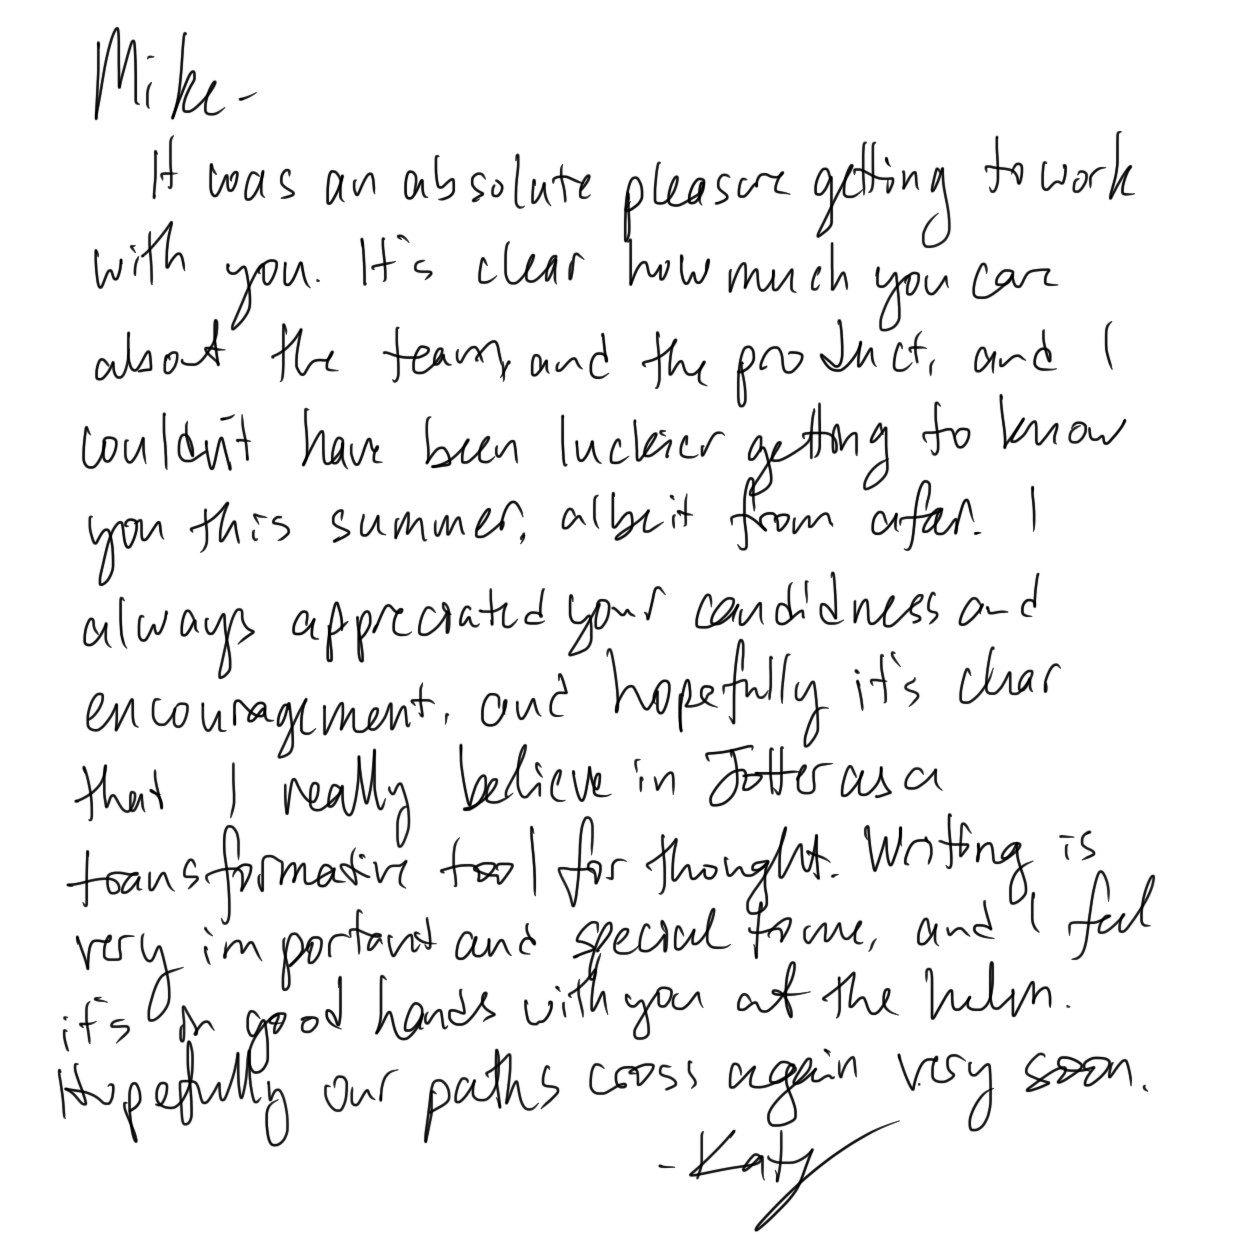 Mike-
It was an absolute pleasure getting to work
with you. It's clear how much you care
about the team, and the product, and I
couldn't have been luckier getting to know
you this summer, albeit from afar. I
always appreciated your candidness and
encouragement, and hopefully it's clear
that I really believe in Jotter as a
transformative tool for thought. Writing is
very important and special to me, and I feel
it's in good hands with you at the helm.
Hopefully our paths cross again very soon.
-Katy